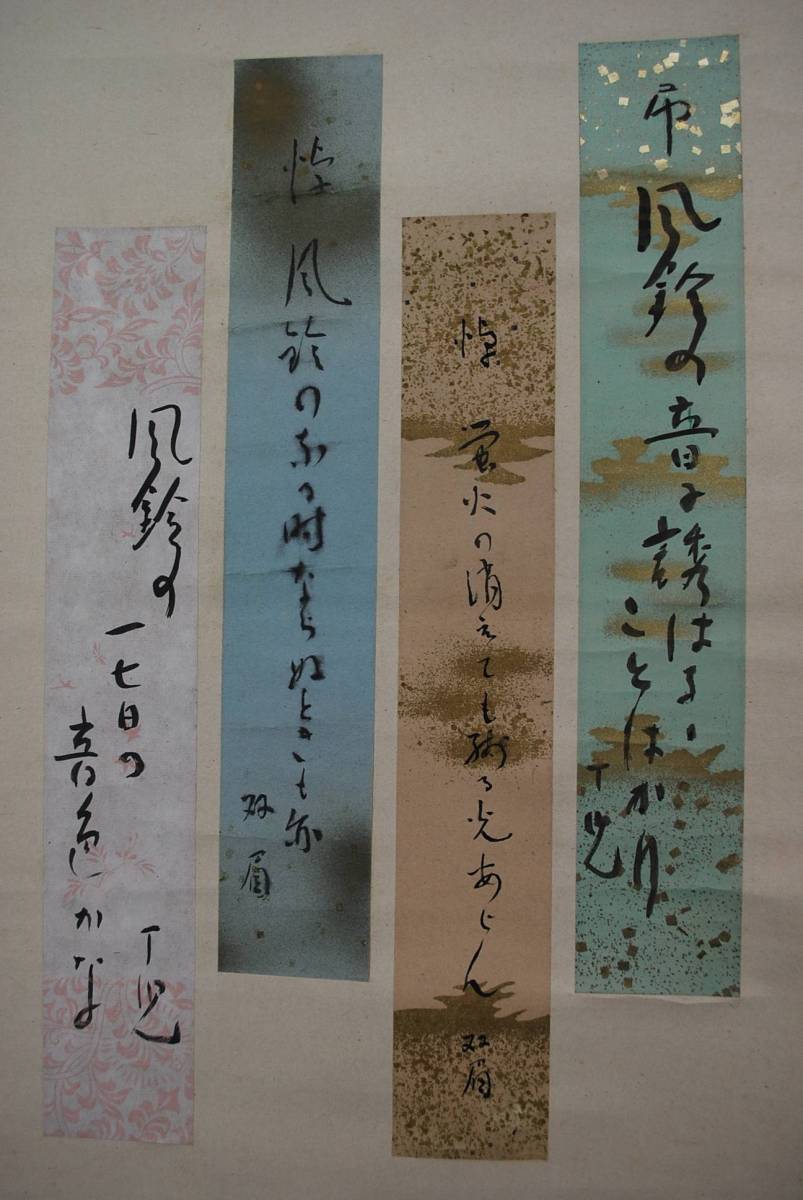 弔
風鈴の音に誘はるゝ
ことはかり
丁児
悼 蛍火の消えても残る光あらん
双眉
悼 風鈴のなる時ならぬときも亦
双眉
風鈴の
一七日の
音色かな
丁児